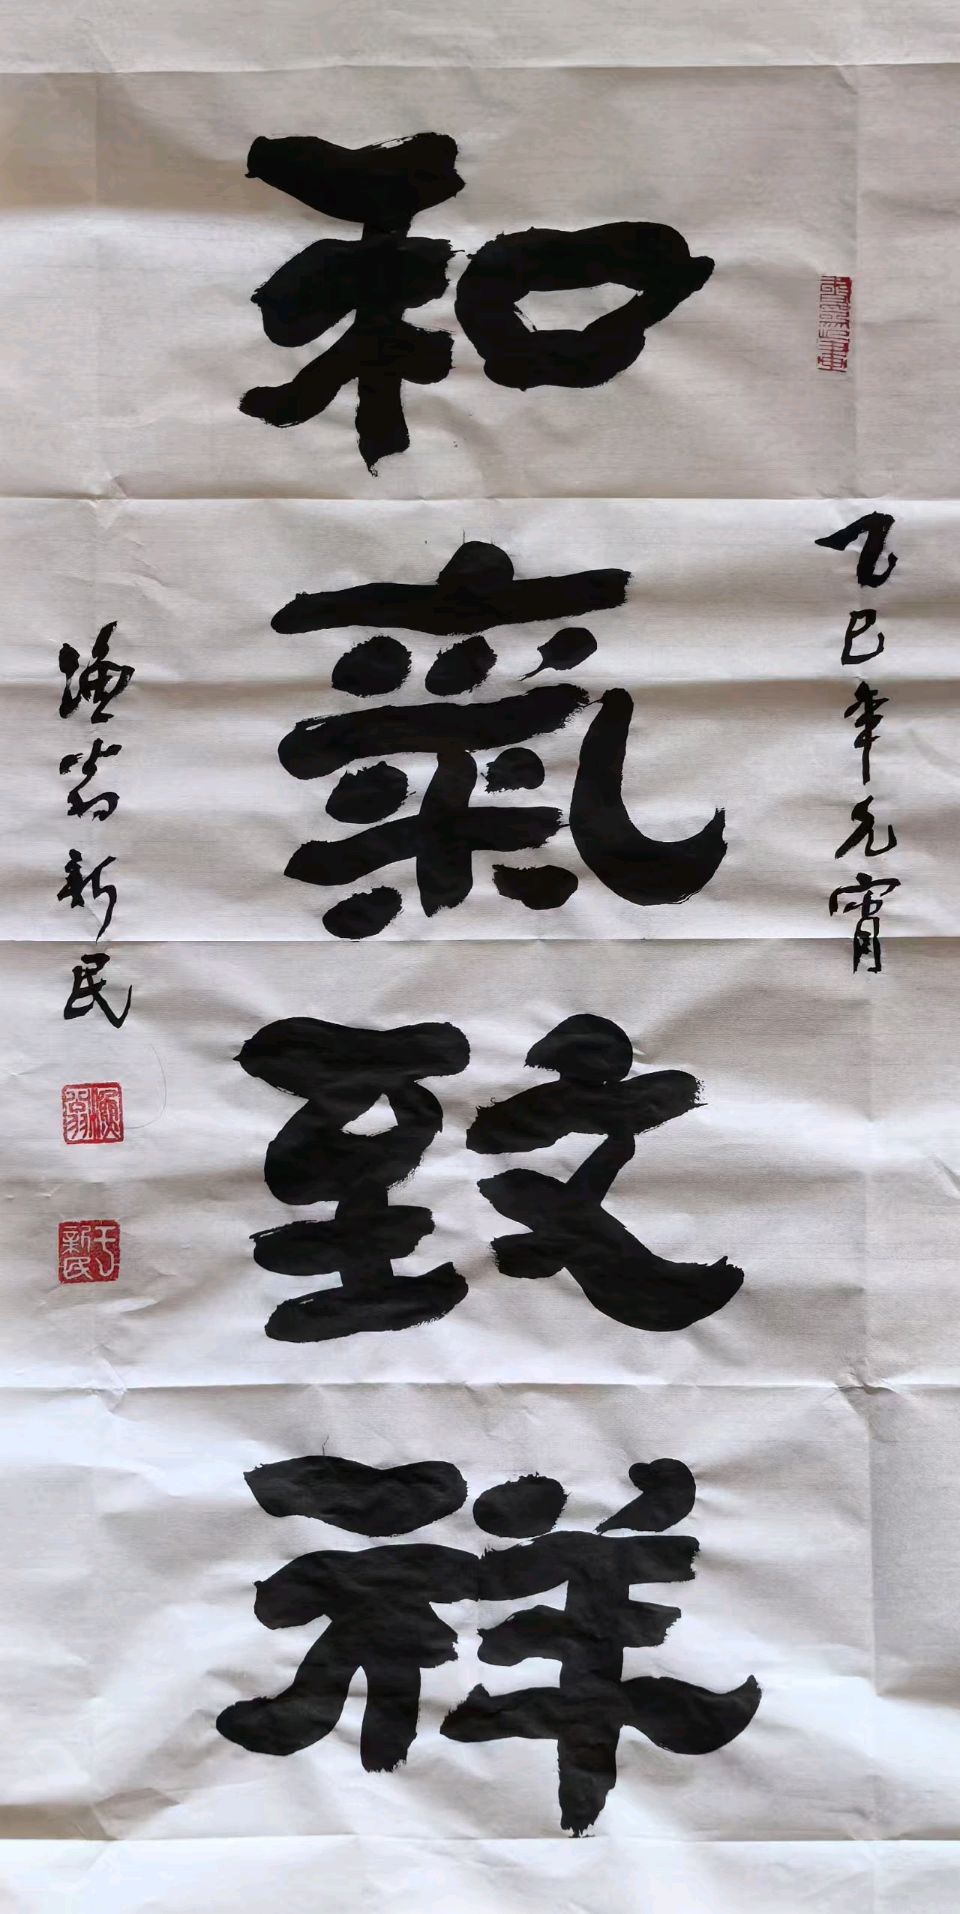 和氣致祥
乙巳年元宵
漁翁新民
漁翁
新民